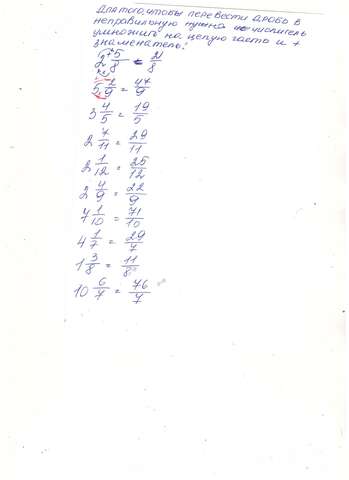 Для того, чтобы перевести дробь в
неправильную нужно числитель
умножить на целую часть и +
знаменатель!
2 5/8 = 21/8
5 2/9 = 47/9
3 4/5 = 19/5
2 7/11 = 29/11
2 1/12 = 25/12
2 4/9 = 22/9
7 1/10 = 71/10
4 1/7 = 29/7
1 3/8 = 11/8
10 6/7 = 76/7